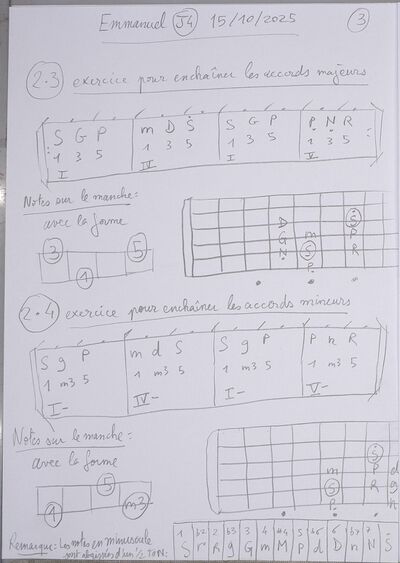 Emmanuel J4 15/10/2025 3
2.3 exercice pour enchaîner les accords majeurs
S G P m D Ṡ S G P P N R
: 1 3 5 1 3 5 1 3 5 1 3 5 :
I IV I V
Notes sur le manche:
avec la forme
3 5
1
Ṡ
D P
G m R
N S
P
2.4 exercice pour enchaîner les accords mineurs
S g P m d S S g P P n R
1 m3 5 1 m3 5 1 m3 5 1 m3 5
I- IV- I- V-
Notes sur le manche:
avec la forme
5
1 m3
Ṡ
P d
m R g
S n
P
1 b2 2 b3 3 4 #4 5 b6 6 b7 7
S r R g G m M P d D n N Ṡ
Remarque: Les notes en minuscule
sont abaissées d'un ½ TON: